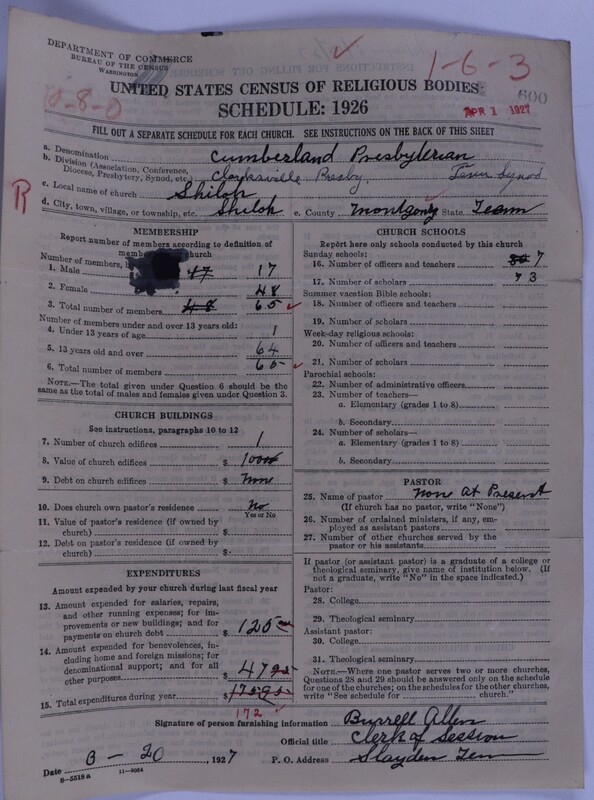 DEPARTMENT OF COMMERCE
BUREAU OF THE CENSUS
WASHINGTON
1-6-3
600
APR 1 1927
UNITED STATES CENSUS OF RELIGIOUS BODIES
SCHEDULE: 1926
FILL OUT A SEPARATE SCHEDULE FOR EACH CHURCH. SEE INSTRUCTIONS ON THE BACK OF THIS SHEET
a. Denomination Cumberland Presbyterian
b. Division (Association, Conference, Diocese, Presbytery, Synod, etc.) Clarksville Presby. Tenn Synod
R
c. Local name of church Shiloh
d. City, town, village, or township, etc. Shiloh e. County Montgomy State Tenn
MEMBERSHIP
Report number of members according to definition of
member church
Number of members, b
1. Male 17 17
2. Female 48
3. Total number of members 48 65
Number of members under and over 13 years old:
4. Under 13 years of age 1
5. 13 years old and over 64
6. Total number of members 65
NOTE.—The total given under Question 6 should be the
same as the total of males and females given under Question 3.
CHURCH BUILDINGS
See instructions, paragraphs 10 to 12
7. Number of church edifices 1
8. Value of church edifices $ 1000
9. Debt on church edifices $ none
10. Does church own pastor's residence No
Yes or No
11. Value of pastor's residence (if owned by
church) $
12. Debt on pastor's residence (if owned by
church) $
EXPENDITURES
Amount expended by your church during last fiscal year
13. Amount expended for salaries, repairs,
and other running expenses; for im-
provements or new buildings; and for
payments on church debt $ 125
14. Amount expended for benevolences, in-
cluding home and foreign missions; for
denominational support; and for all
other purposes $ 47 95
15. Total expenditures during year $ 172 95
172
CHURCH SCHOOLS
Report here only schools conducted by this church
Sunday schools:
16. Number of officers and teachers 7
17. Number of scholars 73
Summer vacation Bible schools:
18. Number of officers and teachers
19. Number of scholars
Week-day religious schools:
20. Number of officers and teachers
21. Number of scholars
Parochial schools:
22. Number of administrative officers
23. Number of teachers—
a. Elementary (grades 1 to 8)
b. Secondary
24. Number of scholars—
a. Elementary (grades 1 to 8)
b. Secondary
PASTOR
25. Name of pastor None at Present
(If church has no pastor, write "None")
26. Number of ordained ministers, if any, em-
ployed as assistant pastors
27. Number of other churches served by the
pastor or his assistants
If pastor (or assistant pastor) is a graduate of a college or
theological seminary, give name of institution below. (If
not a graduate, write "No" in the space indicated.)
Pastor:
28. College
29. Theological seminary
Assistant pastor:
30. College
31. Theological seminary
NOTE.—Where one pastor serves two or more churches,
Questions 28 and 29 should be answered only on the schedule
for one of the churches; on the schedules for the other churches,
write "See schedule for church."
Signature of person furnishing information Burrell Allen
Official title Clerk of Session
Date 3-20, 1927 P. O. Address Slayden Ten
8-5518 a 11-9064